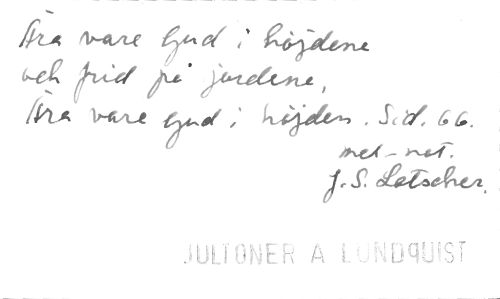 Ära vare Gud i höjdene
och frid på jordene,
Ära vare Gud i höjden. Sid. 66.
mel-not.
J. S. Lotscher.
JULTONER A LUNDQUIST